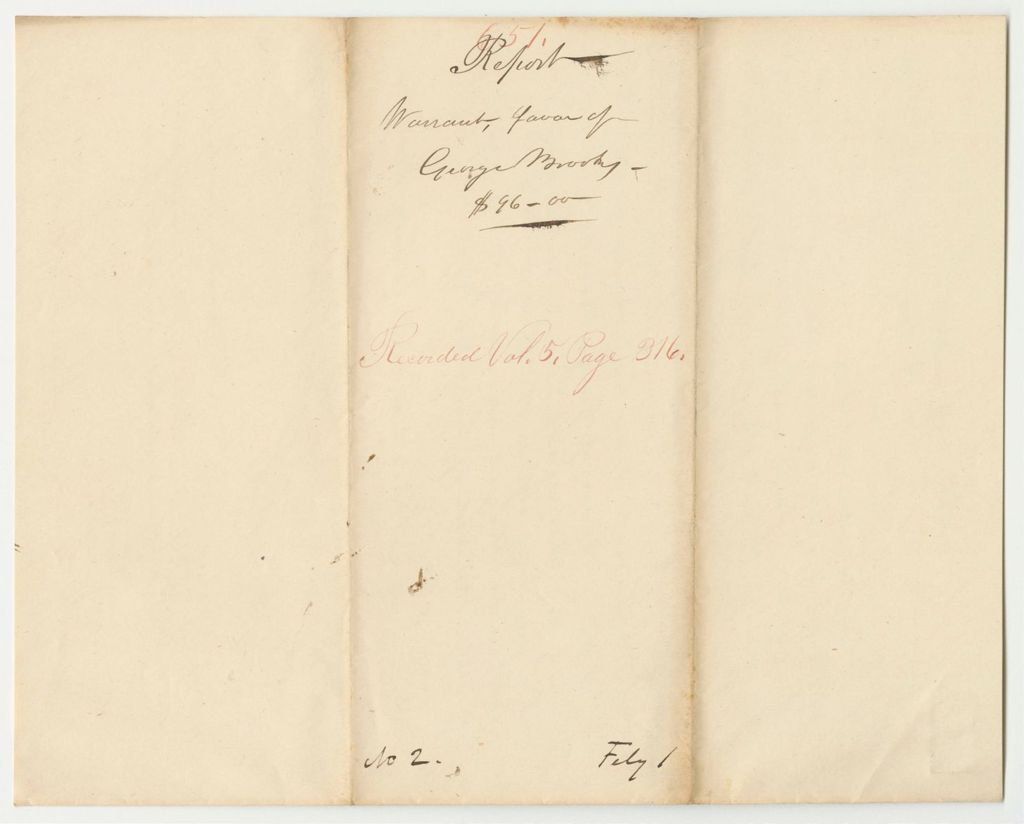 651.
Report
Warrant, favor of
George Brooks -
$96-00
Recorded Vol. 5, Page 316.
No 2. Feby 1